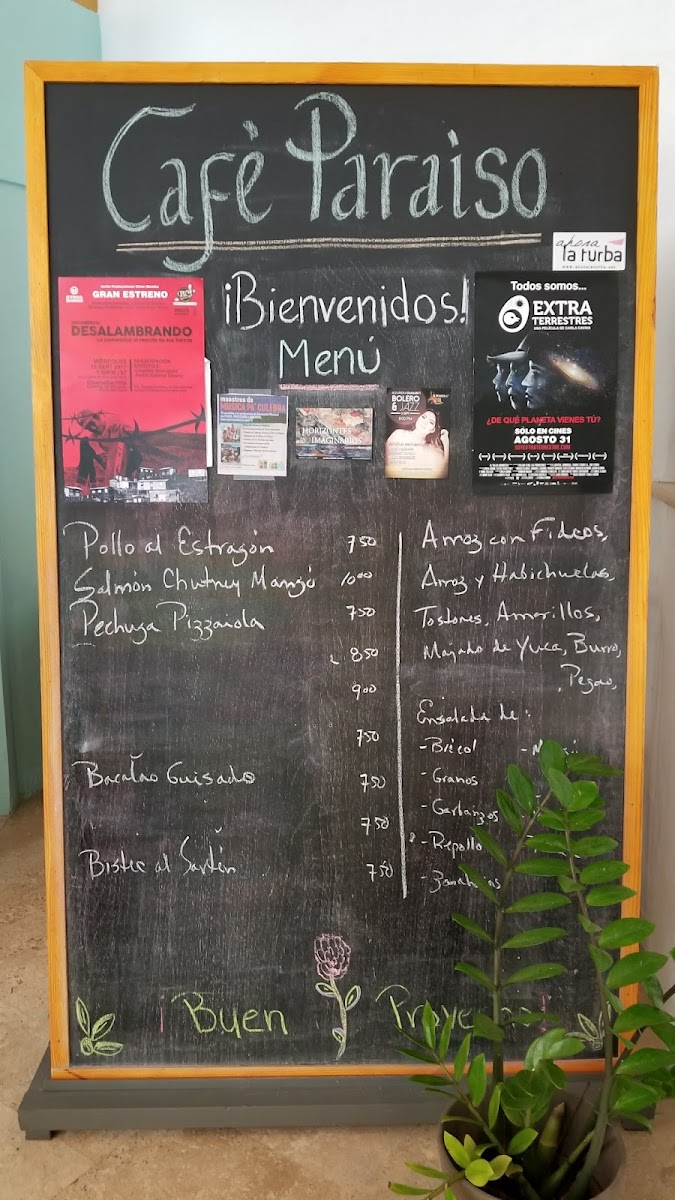 Cafè Paraiso
ahora
la turba
¡Bienvenidos!
Menú
GRAN ESTRENO
DESALAMBRANDO
maestros de
MUSICA PA' CULEBRA
HORIZONTES
IMAGINARIOS
BOLERO
& JAZZ
Todos somos...
EXTRA
TERRESTRES
UNA PELÍCULA DE CARLA CAVINA
¿DE QUÉ PLANETA VIENES TÚ?
SÓLO EN CINES
AGOSTO 31
Pollo al Estragón 750
Salmón Chutney Mangó 1000
Pechuga Pizzaiola 750
850
900
750
Bacalao Guisado 750
750
Bistec al Sartén 750
Arroz con Fideos,
Arroz y Habichuelas,
Tostones, Amarillos,
Majado de Yuca, Burro,
Pegao,
Ensalada de:
- Brécol
- Granos
- Garbanzos
- Repollo
¡Buen